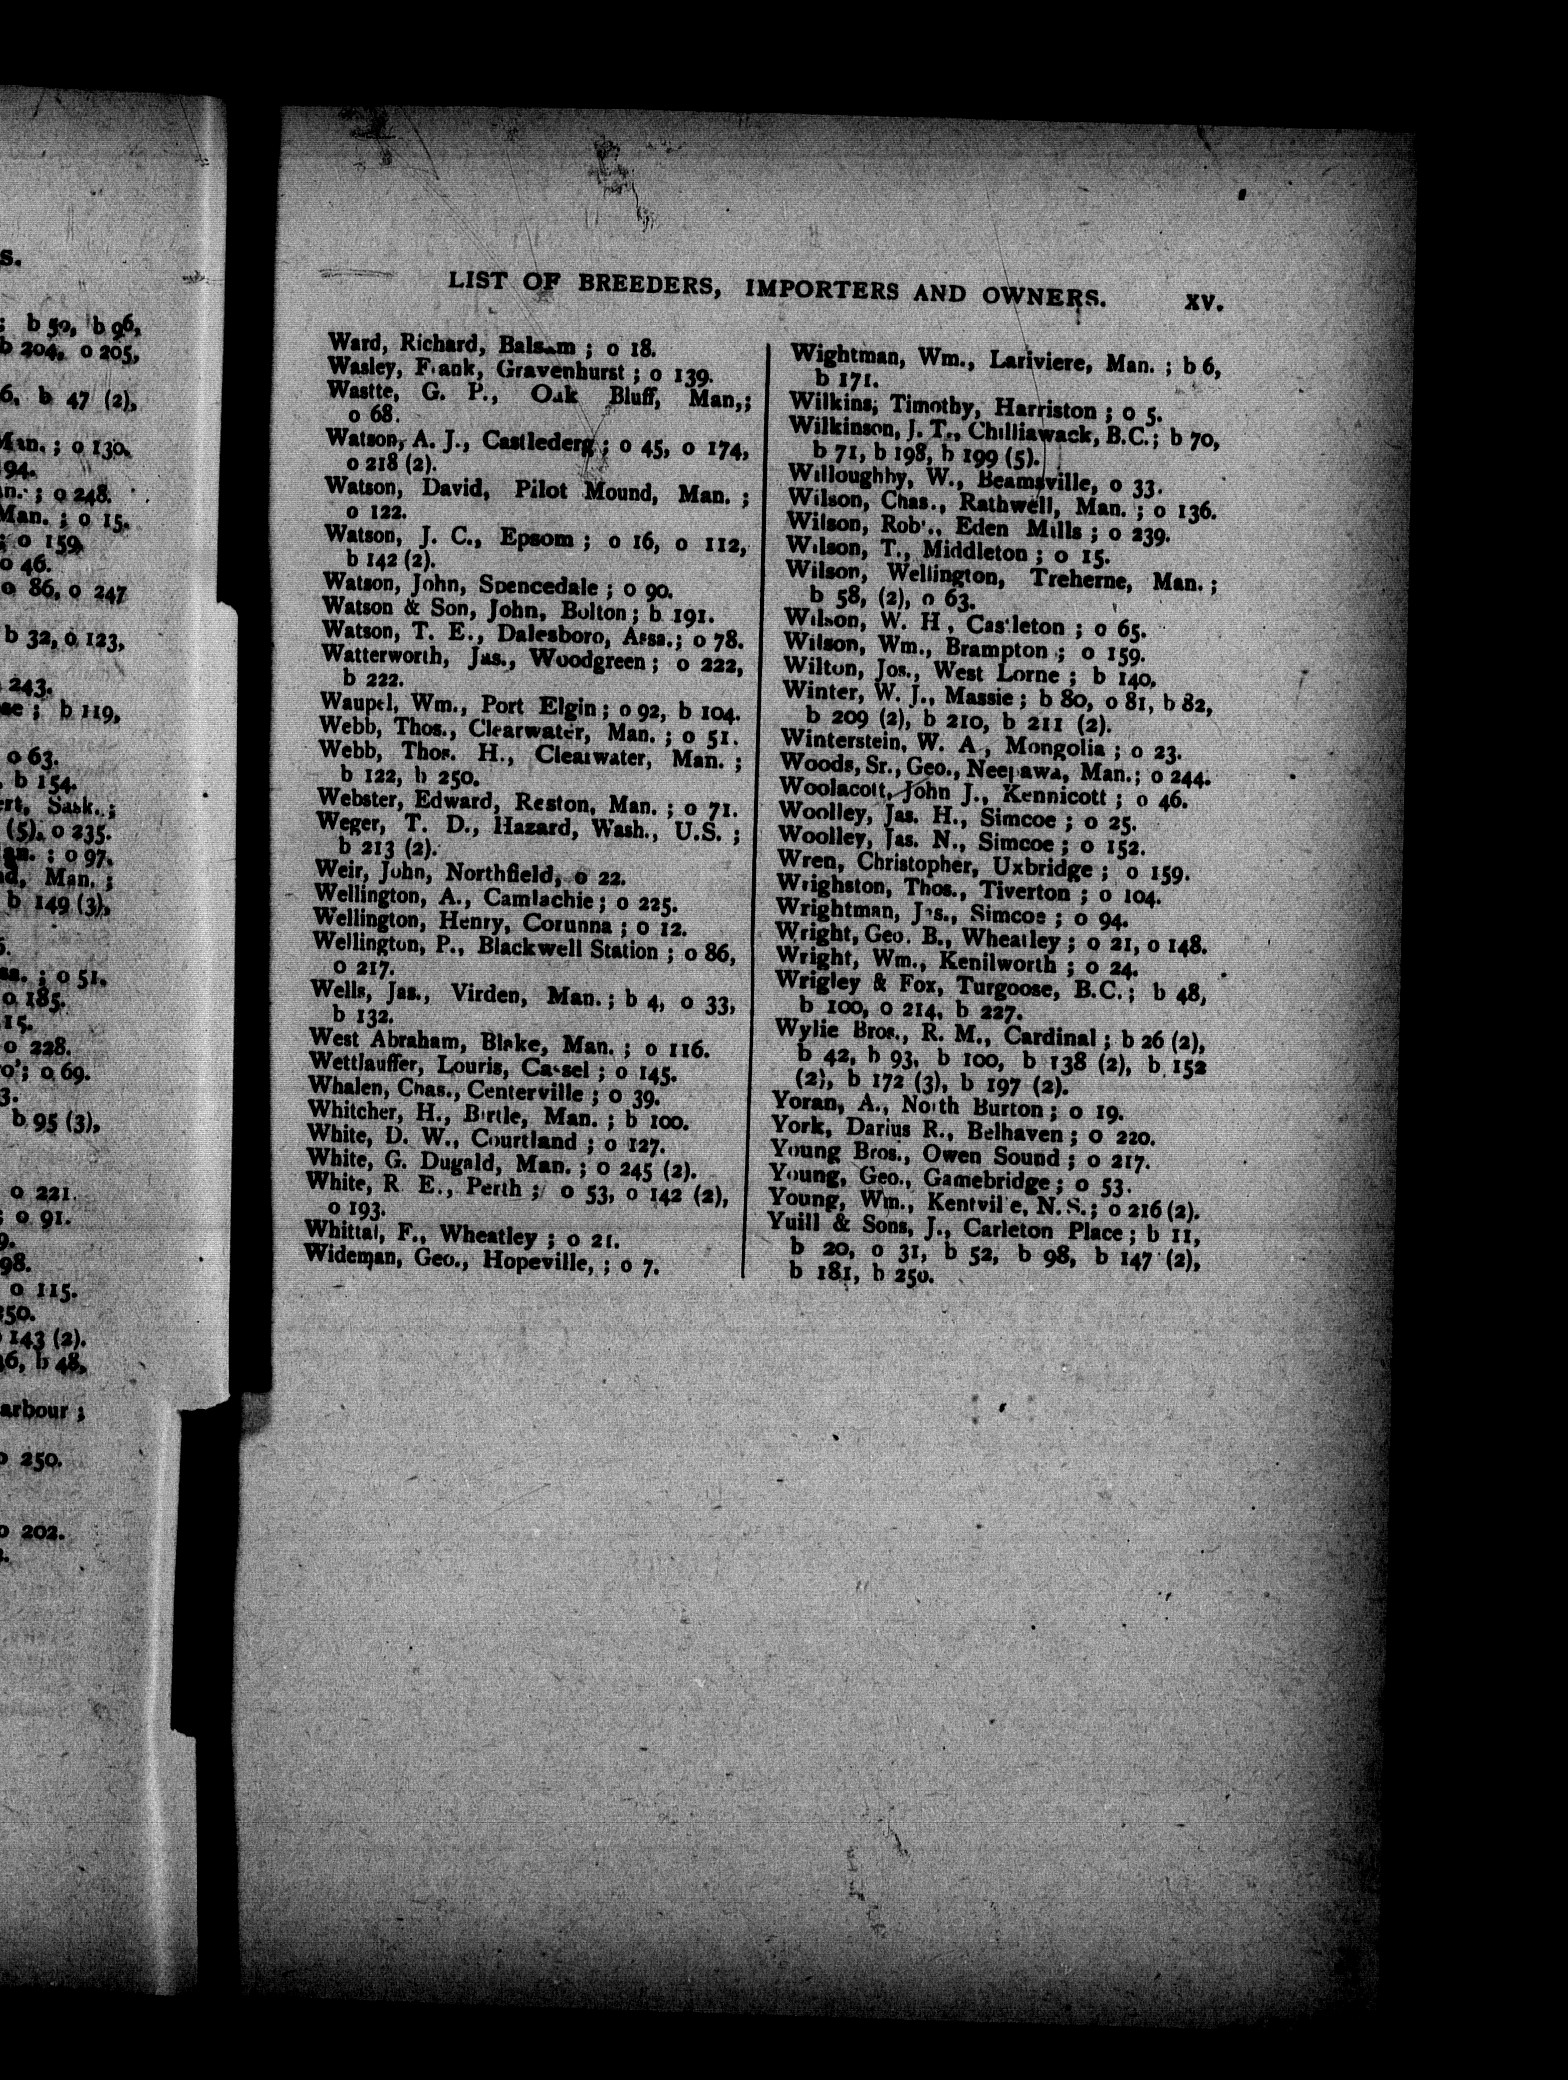 S.
; b 50, b 96,
b 204, o 205,
6, b 47 (2),
Man. ; o 130.
94.
n. ; o 248.
Man. ; o 15.
; o 159.
o 46.
o 86, o 247
b 32, o 123,
243.
se ; b 119,
o 63.
, b 154.
ert, Sask. ;
(5), o 235.
an. ; o 97.
nd, Man. ;
b 149 (3),
5.
sa. ; o 51.
o 185.
15.
o 228.
ro'; o 69.
3.
b 95 (3),
o 221.
; o 91.
9.
98.
o 115.
250.
143 (2).
46, b 48,
arbour ;
o 250.
o 202.
LIST OF BREEDERS, IMPORTERS AND OWNERS. XV.
Ward, Richard, Balsam ; o 18.
Wasley, Frank, Gravenhurst ; o 139.
Wastte, G. P., Oak Bluff, Man,;
o 68.
Watson, A. J., Castlederg ; o 45, o 174,
o 218 (2).
Watson, David, Pilot Mound, Man. ;
o 122.
Watson, J. C., Epsom ; o 16, o 112,
b 142 (2).
Watson, John, Spencedale ; o 90.
Watson & Son, John, Bolton ; b 191.
Watson, T. E., Dalesboro, Assa.; o 78.
Watterworth, Jas., Woodgreen ; o 222,
b 222.
Waupel, Wm., Port Elgin ; o 92, b 104.
Webb, Thos., Clearwater, Man. ; o 51.
Webb, Thos. H., Clearwater, Man. ;
b 122, b 250.
Webster, Edward, Reston, Man. ; o 71.
Weger, T. D., Hazard, Wash., U.S. ;
b 213 (2).
Weir, John, Northfield, o 22.
Wellington, A., Camlachie ; o 225.
Wellington, Henry, Corunna ; o 12.
Wellington, P., Blackwell Station ; o 86,
o 217.
Wells, Jas., Virden, Man. ; b 4, o 33,
b 132.
West Abraham, Blake, Man. ; o 116.
Wettlauffer, Louris, Cassel ; o 145.
Whalen, Chas., Centerville ; o 39.
Whitcher, H., Birtle, Man. ; b 100.
White, D. W., Courtland ; o 127.
White, G. Dugald, Man. ; o 245 (2).
White, R E., Perth ; o 53, o 142 (2),
o 193.
Whittal, F., Wheatley ; o 21.
Wideman, Geo., Hopeville, ; o 7.
Wightman, Wm., Lariviere, Man. ; b 6,
b 171.
Wilkins, Timothy, Harriston ; o 5.
Wilkinson, J. T., Chilliawack, B.C.; b 70,
b 71, b 198, b 199 (5).
Willoughby, W., Beamsville, o 33.
Wilson, Chas., Rathwell, Man. ; o 136.
Wilson, Robt., Eden Mills ; o 239.
Wilson, T., Middleton ; o 15.
Wilson, Wellington, Treherne, Man. ;
b 58, (2), o 63.
Wilson, W. H, Castleton ; o 65.
Wilson, Wm., Brampton ; o 159.
Wilton, Jos., West Lorne ; b 140.
Winter, W. J., Massie ; b 80, o 81, b 82,
b 209 (2), b 210, b 211 (2).
Winterstein, W. A., Mongolia ; o 23.
Woods, Sr., Geo., Neepawa, Man.; o 244.
Woolacott, John J., Kennicott ; o 46.
Woolley, Jas. H., Simcoe ; o 25.
Woolley, Jas. N., Simcoe ; o 152.
Wren, Christopher, Uxbridge ; o 159.
Wrighston, Thos., Tiverton ; o 104.
Wrightman, Jas., Simcoe ; o 94.
Wright, Geo. B., Wheatley ; o 21, o 148.
Wright, Wm., Kenilworth ; o 24.
Wrigley & Fox, Turgoose, B.C. ; b 48,
b 100, o 214, b 227.
Wylie Bros., R. M., Cardinal ; b 26 (2),
b 42, b 93, b 100, b 138 (2), b 152
(2), b 172 (3), b 197 (2).
Yoran, A., North Burton ; o 19.
York, Darius R., Belhaven ; o 220.
Young Bros., Owen Sound ; o 217.
Young, Geo., Gamebridge ; o 53.
Young, Wm., Kentville, N. S.; o 216 (2).
Yuill & Sons, J., Carleton Place ; b 11,
b 20, o 31, b 52, b 98, b 147 (2),
b 181, b 250.